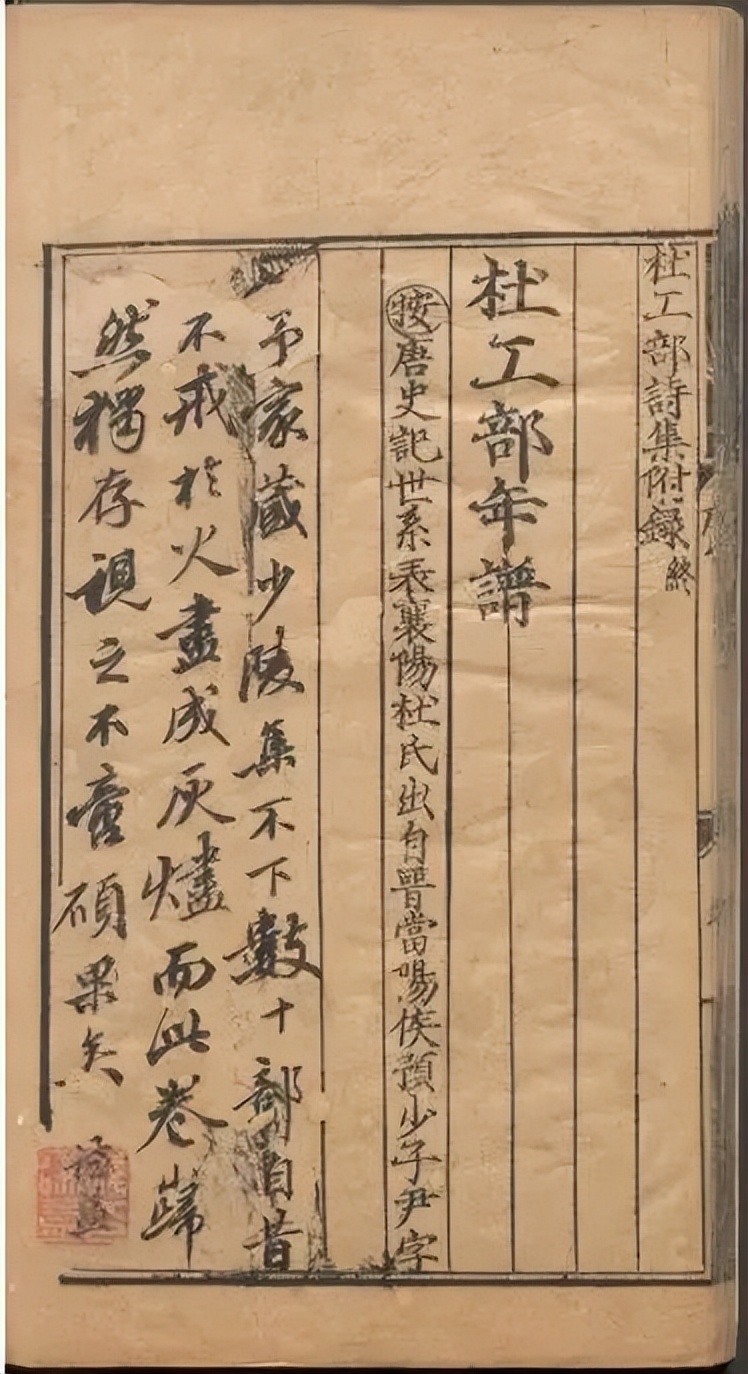 杜工部詩集附錄終
杜工部年譜
按唐史記世系表襄陽杜氏出自晉當陽侯預少子尹字
予家藏少陵集不下數十部自昔
不戒於火盡成灰燼而此卷巋
然獨存視之不啻碩果矣